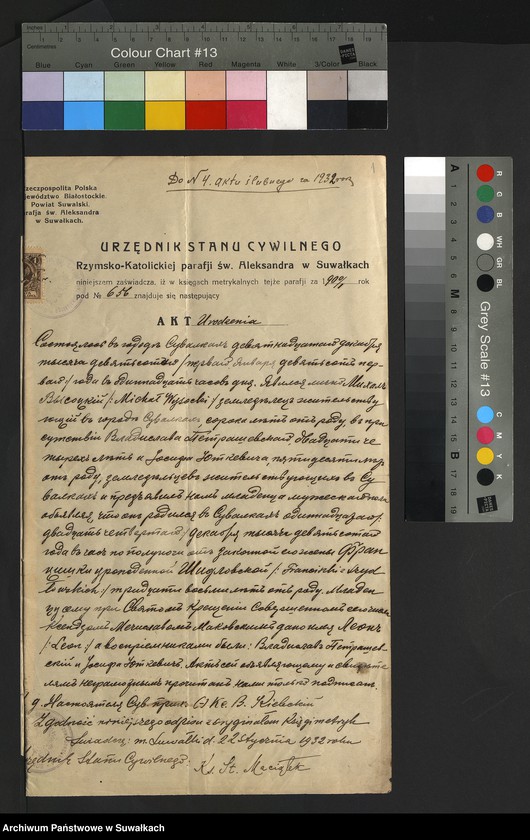 Inches
Centimetres
Colour Chart #13
Blue Cyan Green Yellow Red Magenta White 3/Color Black
Do N 4. aktu ślubnego za 1932 rok
1
zeczpospolita Polska
jewództwo Białostockie
Powiat Suwalski.
rafja św. Aleksandra
w Suwałkach.
URZĘDNIK STANU CYWILNEGO
Rzymsko-Katolickiej parafji św. Aleksandra w Suwałkach
niniejszem zaświadcza, iż w księgach metrykalnych tejże parafji za 1900 rok
pod № 656 znajduje się następujący
AKT Urodzenia
Состоялось въ городѣ Сувалкахъ девятнадцатаго декабря
тысяча девятьсотаго /перваго Января девятьсотъ пер-
ваго/ года въ одиннадцать часовъ дня. Явился лично Михаилъ
Высоцкій /: Michał Wysocki :/ земледѣлецъ жительствую-
ющій въ городѣ Сувалкахъ сорока лѣтъ отъ роду, въ при
сутствіи Владислава Петрашевскаго двадцати че
тырехъ лѣтъ и Іосифа Юткевича, пятидесяти лѣтъ
отъ роду, земледѣльцевъ жительствующихъ въ Су
валкахъ и предъявилъ намъ младенца мужескаго пола
объявляя, что онъ родился въ Сувалкахъ одиннадцатаго/
двадцать четвертаго/ декабря тысяча девятьсотаго
года въ часъ по полуночи отъ законной его жены Фран
цишки урожденной Шидловской /: Franciszki Szyd
łowskich :/ тридцати восьми лѣтъ отъ роду. Младен
цу сему при Святомъ Крещеніи совершенномъ сего числа
Ксендзомъ Мечиславомъ Маковскимъ дано имя Леонъ
/: Leon :/ а воспріемниками были: Владиславъ Петрашев-
скій и Іосифа Юткевичъ. Актъ сей объявляющему и свидѣте
лямъ неграмотнымъ прочитанъ нами только подписанъ.
Настоятель Сув. прих. (-) Кс. В.
Zgodność niniejszego odpisu z oryginałem Ksiąg metryk
świadczę: m. Suwałki d. 22 Stycznia 1932 roku
rzędnik Stanu Cywilnego: Ks. St. Maciątek
Grey Scale #13
R G B
WH GR BL
C M Y K
A
M
B
Archiwum Państwowe w Suwałkach